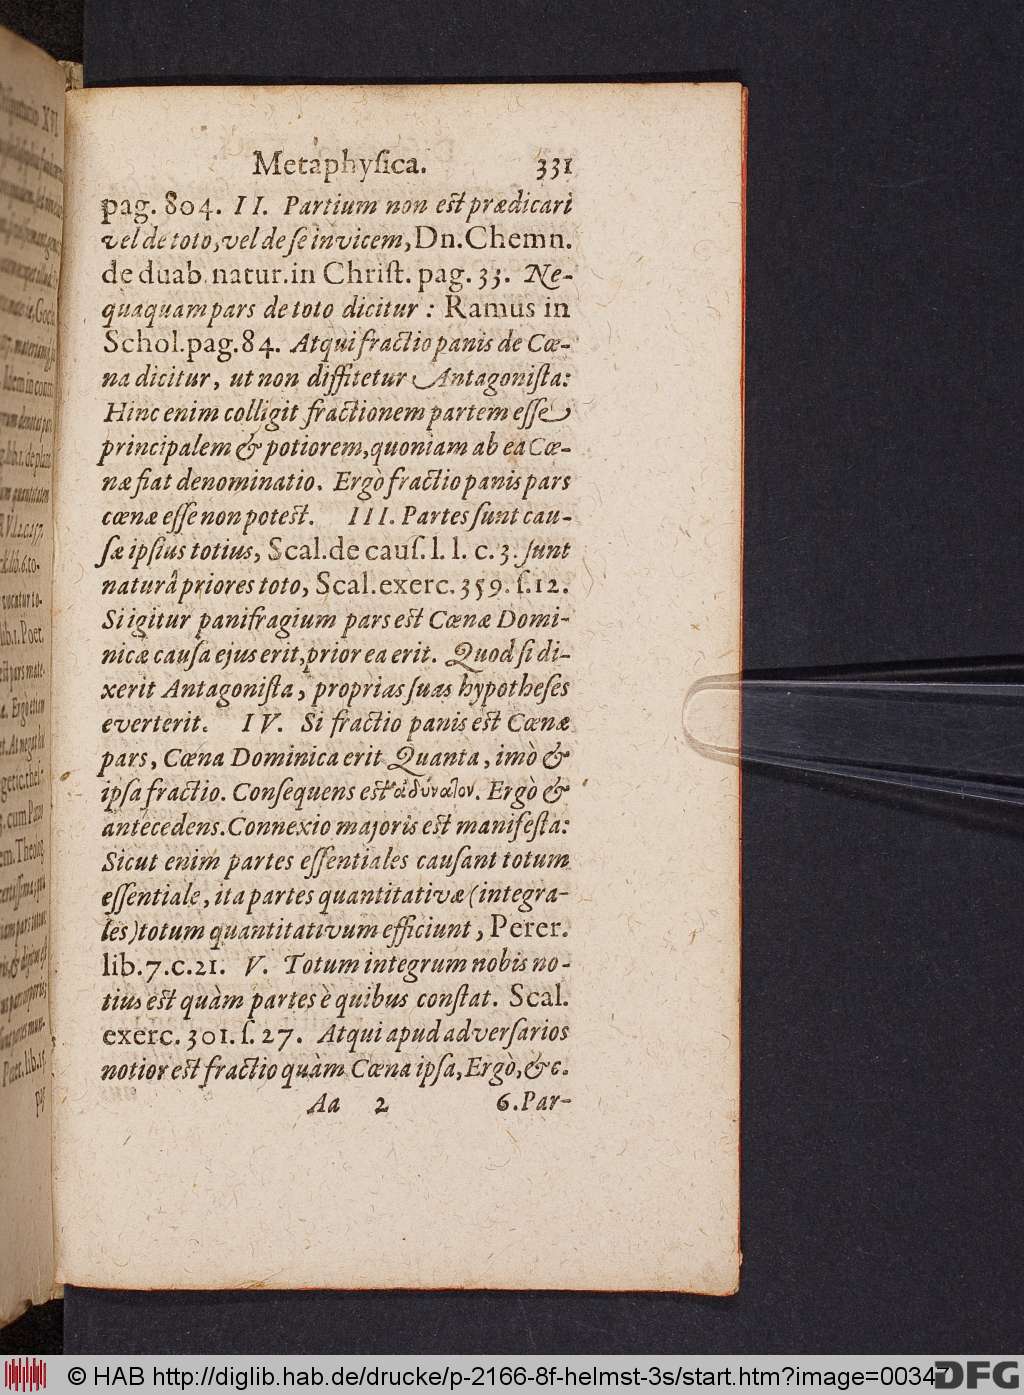 Metaphyſica. 331
pag. 804. II. Partium non eſt prædicari
vel de toto, vel de ſe invicem, Dn. Chemn.
de duab. natur. in Chriſt. pag. 33. Ne-
quaquam pars de toto dicitur : Ramus in
Schol. pag. 84. Atqui fractio panis de Cœ-
na dicitur, ut non diffitetur Antagoniſta:
Hinc enim colligit fractionem partem eſſe
principalem & potiorem, quoniam ab ea Cœ-
næ fiat denominatio. Ergò fractio panis pars
cœnæ eſſe non poteſt. III. Partes ſunt cau-
ſæ ipſius totius, Scal. de cauſ. l. l. c. 3. ſunt
naturâ priores toto, Scal. exerc. 359. ſ. 12.
Si igitur panifragium pars eſt Cœnæ Domi-
nicæ cauſa ejus erit, prior ea erit. Quod ſi di-
xerit Antagoniſta, proprias ſuas hypotheſes
everterit. IV. Si fractio panis eſt Cœnæ
pars, Cœna Dominica erit Quanta, imò &
ipſa fractio. Conſequens eſt ἀδύνατον. Ergò &
antecedens. Connexio majoris eſt manifeſta:
Sicut enim partes eſſentiales cauſant totum
eſſentiale, ita partes quantitativæ (integra-
les) totum quantitativum efficiunt, Perer.
lib. 7. c. 21. V. Totum integrum nobis no-
tius eſt quàm partes è quibus conſtat. Scal.
exerc. 301. ſ. 27. Atqui apud adverſarios
notior eſt fractio quàm Cœna ipſa, Ergò, &c.
Aa 2 6. Par-
© HAB http://diglib.hab.de/drucke/p-2166-8f-helmst-3s/start.htm?image=00347
DFG